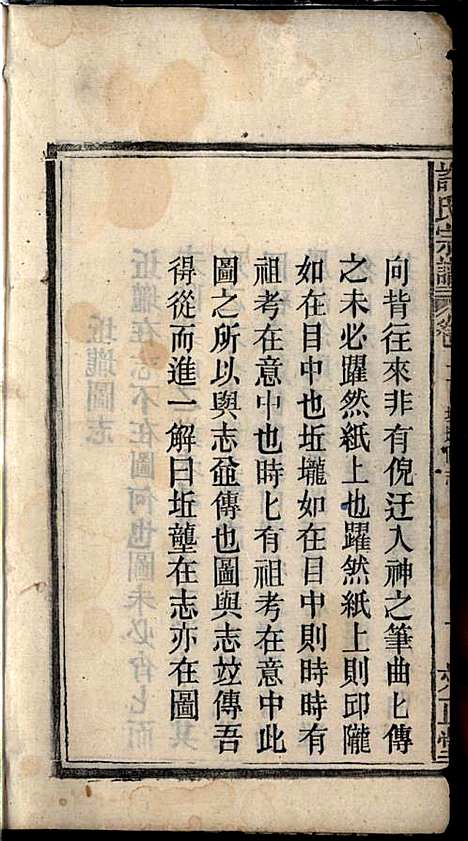 許氏宗譜
向背往來非有倪迂入神之筆曲匕傳
之未必躍然紙上也躍然紙上則邱隴
如在目中也坵壠如在目中則時時有
祖考在意中也時匕有祖考在意中此
圖之所以與志並傳也圖與志竝傳吾
得從而進一解曰坵壟在志亦在圖
坵壠圖志
坵壠在志不在圖何也圖未必肖匕而